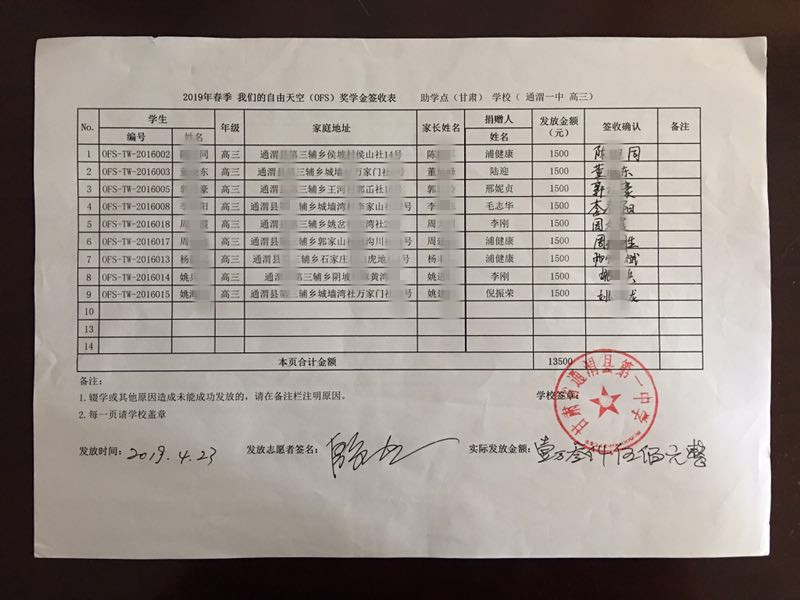 2019年春季 我们的自由天空（OFS）奖学金签收表 助学点（甘肃） 学校（ 通渭一中 高三）
No. 学生 年级 家庭地址 家长姓名 捐赠人 发放金额（元） 签收确认 备注
编号 姓名 姓名
1 OFS-TW-2016002 同 高三 通渭县第三辅乡侯坡村侯山社14号 陈 浦健康 1500 陈 同
2 OFS-TW-2016003 董 东 高三 通渭县第三辅乡城墙 万家门社 号 董 陆迎 1500 董 东
3 OFS-TW-2016005 郭 豪 高三 通渭县第三辅乡王河 社1 号 郭 邢妮贞 1500 郭 豪
4 OFS-TW-2016008 李 阳 高三 通渭县 第三辅乡城墙 李家山社 号 李 毛志华 1500 李 阳
5 OFS-TW-2016014 周 霞 高三 通渭县 三辅乡姚岔 湾社2 号 周 李刚 1500 周
6 OFS-TW-2016017 周 高三 通渭县 辅乡郭家山 沟川 号 周 浦健康 1500 周 胜
7 OFS-TW-2016013 杨 高三 通渭县 三辅乡石家庄 虎地 号 杨 浦健康 1500 斌
8 OFS-TW-2016014 姚 高三 通渭县 三辅乡阴坡 黄湾 号 姚 李刚 1500 姚 兵
9 OFS-TW-2016015 姚 高三 通渭县第三辅乡城墙湾社万家门社 号 姚 倪振荣 1500 龙
10
13
14
本页合计金额 13500
备注：
1.辍学或其他原因造成未能成功发放的，请在备注栏注明原因。 学校签章：
2.每一页请学校盖章
甘肃省通渭县第一中学
发放时间： 2019.4.23 发放志愿者签名： 实际发放金额： 壹万叁仟伍佰元整